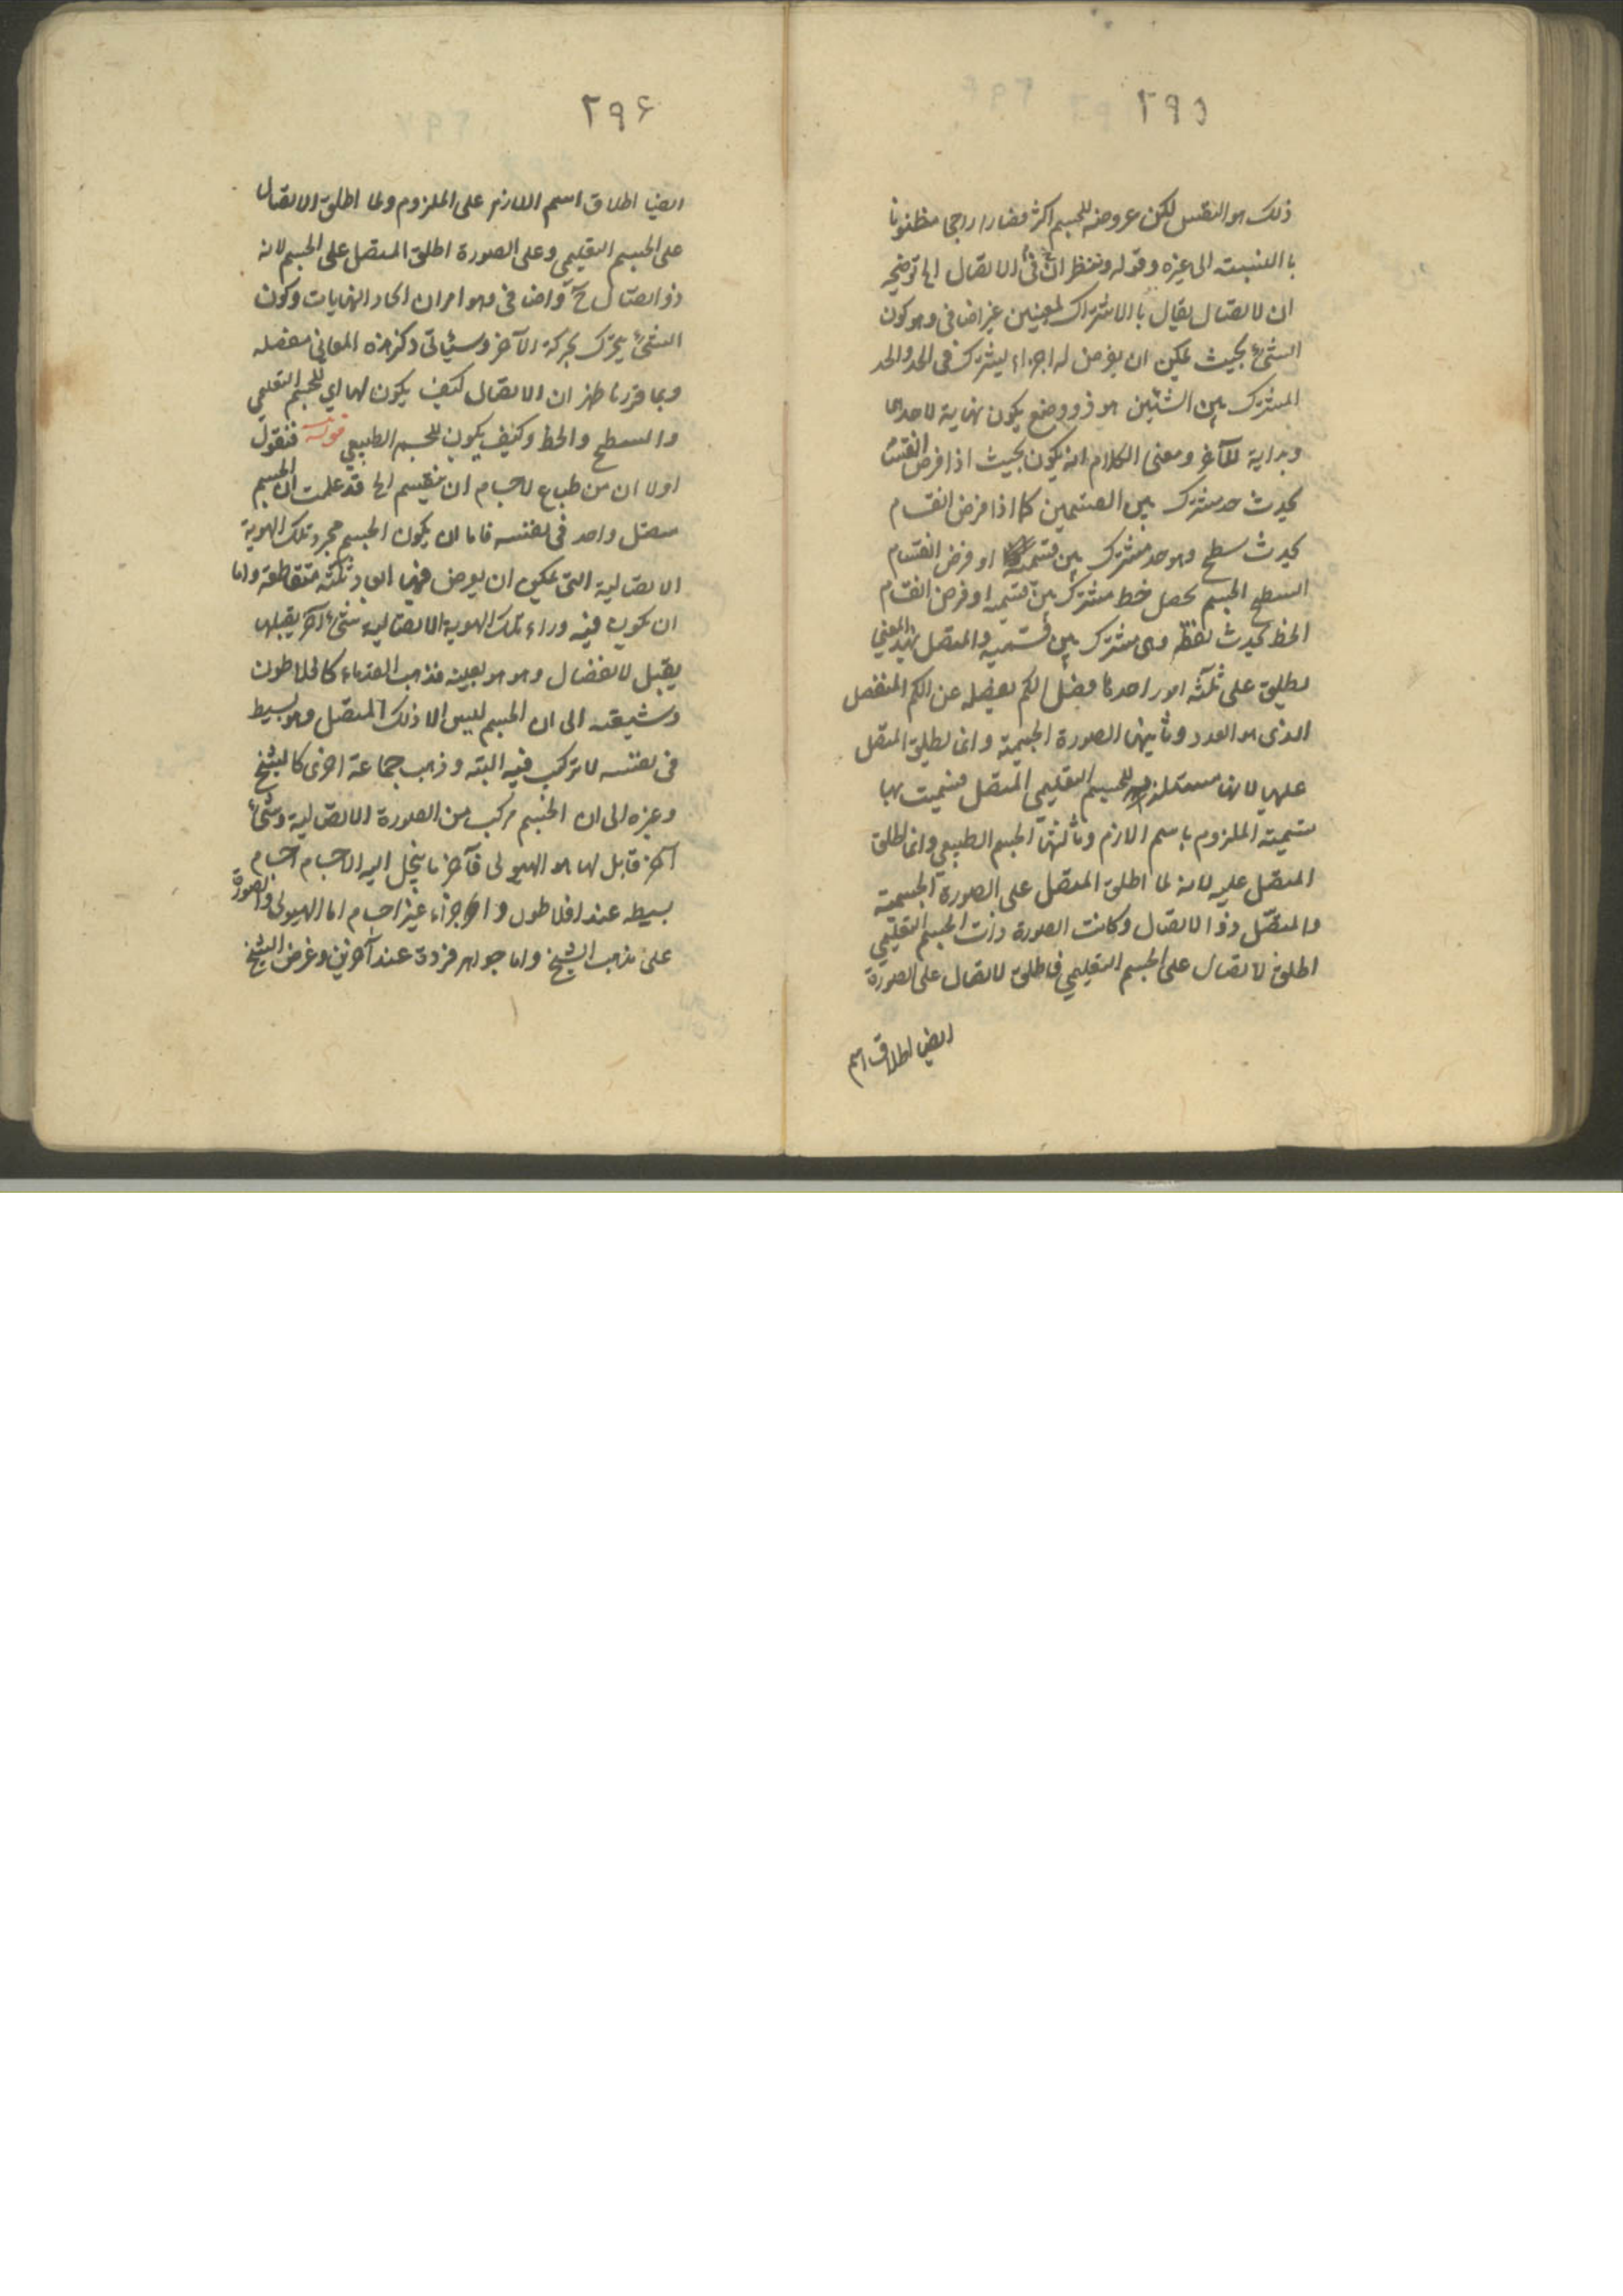 ٢٩٥
ذلك هو النفس لكن عروضه للجسم اكثر فصار راجحا مظنونا
با النسبته الى غيره وقوله وننظر ان فى الاتصال الخ توضيحه
ان لاتصال يقال با الاشتراك لمعنيين غير اضافى وهو كون
الشئ بحيث يمكن ان يفرض له اجزاء يشترك فى الحد والحد
المشترك بين الشيئين هو ذو وضع يكون نهاية لاحدها
وبداية للآخر ومعنى الكلام انه يكون بحيث اذا فرض
يحدث حد مشترك بين القسمين كما اذا فرض انقسام
يحدث سطح وهو حد مشترك بين قسميه او فرض انقسام
السطح الجسم يحصل خط مشترك بين قسميه او فرض انقسام
الخط يحدث نقطه وهى مشترك بين قسميه والمتصل بهذ المعني
يطلق على ثلثه امور احدها فصل الكم يفصله عن الكم المنفصل
الذى هو العدد وثانيها الصورة الجسمية وانما يطلق المتصل
عليها لانها مستلزمه للجسم التعليمي المتصل فسميت بها
تسميته الملزوم باسم الازم وثالثها الجسم الطبيعي وانما يطلق
المتصل عليه لانه لما اطلق المتصل على الصورة الجسميته
والمتصل ذو الاتصال وكانت الصورة ذات الجسم التعليمي
اطلق لاتصال على الجسم التعليمي فاطلق لاتصال على الصورة
ايض اطلاق اسم
٢٩۶
ايضا اطلاق اسم اللازم على الملزوم ولما اطلق الاتصال
على الجسم التعليمي وعلى الصورة اطلق المتصل على الجسم لانه
ذو اتصال ح واضافى وهو امران اتحاد النهايات وكون
الشئ يتحرك بحركة الآخر وسيئاتى ذكر هذه المعاني مفصله
وبما قررنا ظهر ان الاتصال كيف يكون لها اي للجسم التعليمي
والسطح والخط وكيف يكون للجسم الطبيعي قوله فنقول
اولا ان من طباع لاجسام ان ينقسم الخ قد علمت ان الجسم
متصل واحد فى نفسه فاما ان يكون الجسم مجرد تلك الهوية
الاتصالية التى يمكن ان يعرض فيها ابعاد ثلثه متقاطعة واما
ان يكون فيه وراء تلك الهوية الاتصالية شئ آخر يقبلها
يقبل لانفصال وهو هو بعينه فذهب القدماء كا فلاطون
وشيعته الى ان الجسم ليس الا ذلك المتصل وهو بسيط
فى نفسه لا تركب فيه البته وذهب جماعة اخرى كا لشيخ
وغيره الى ان الجسم مركب من الصورة الاتصالية وشئ
آخر قابل لها هو الهيولى فآخر ما ينحل اليه الاجسام اجسام
بسيطه عند افلاطون واما اجزاء غير اجسام اما الهيولى والصورة
على مذهب الشيخ واما جواهر فردة عند آخرين وغرض الشيخ